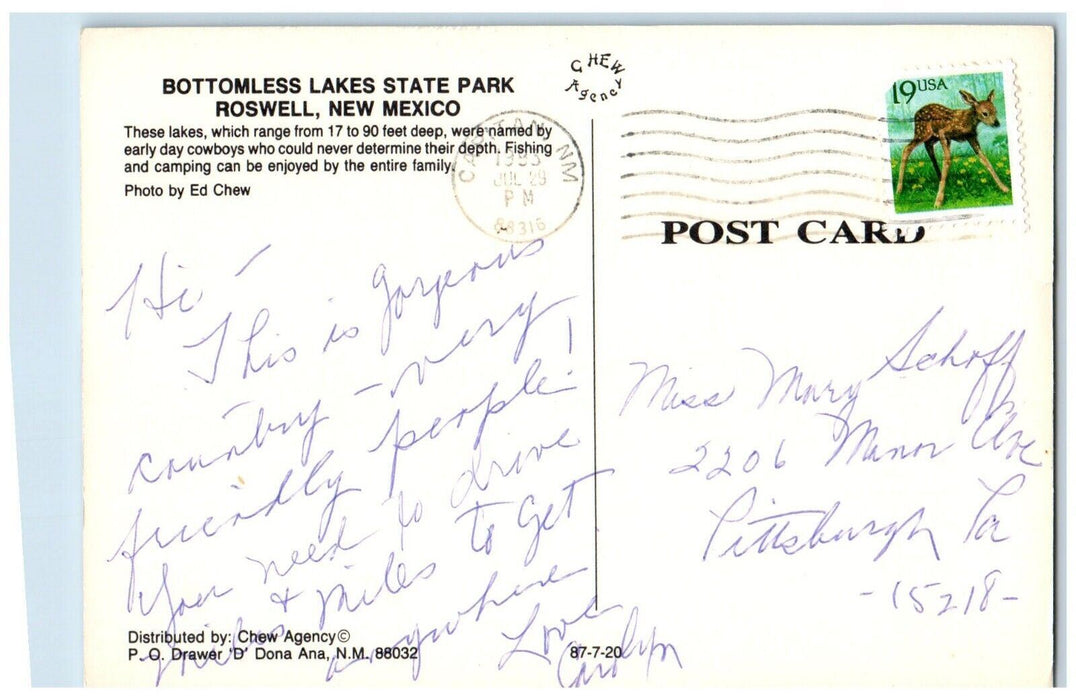 BOTTOMLESS LAKES STATE PARK
ROSWELL, NEW MEXICO
These lakes, which range from 17 to 90 feet deep, were named by
early day cowboys who could never determine their depth. Fishing
and camping can be enjoyed by the entire family.
Photo by Ed Chew
CHEW
Agency
CAPITAN, NM
JUL 29
PM
88316
19USA
POST CARD
Hi -
This is gorgeous
country - very
friendly people!
You need to drive
miles & miles to get
anywhere
Love
Carolyn
Miss Mary Schoff
2206 Manor Ave
Pittsburgh Pa
-15218-
Distributed by: Chew Agency©
P. O. Drawer 'D' Dona Ana, N.M. 88032
87-7-20